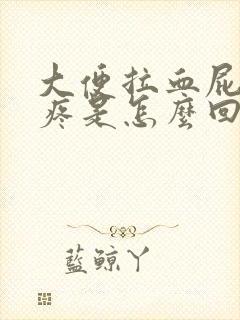 大便拉血屁
疼是怎麼回
藍鯨丫